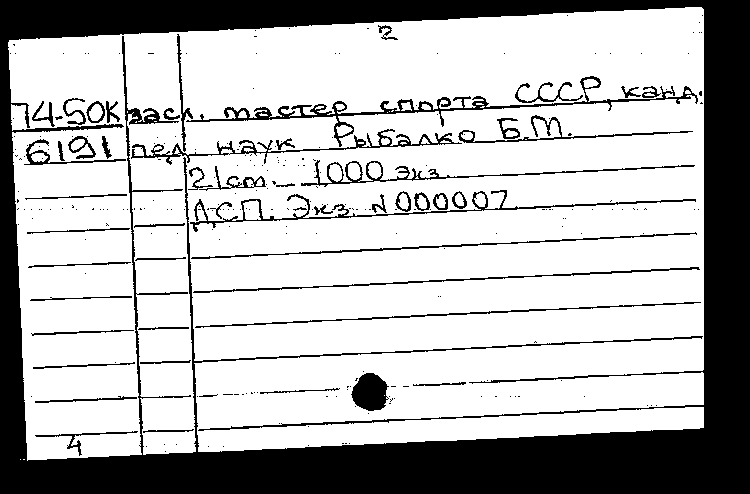 2
74-50К засл. мастер спорта СССР, канд.
6191 пед. наук Рыбалко Б.М.
21 cm. 1000 экз.
ДСП. Экз. N 000007
4